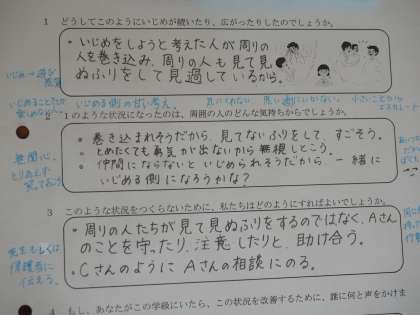 1 どうしてこのようにいじめが続いたり、広がったりしたのでしょうか。
・いじめをしようと考えた人が周りの
人を巻き込み、周りの人も見て見
ぬふりをして見過しているから。
いじめる側の甘い考え。
2 1のような状況になったのは、周囲の人のどんな気持ちからでしょうか。
・巻き込まれそうだから、見てないふりをして、すごそう。
・とめたくても勇気が出ないから無視しとこう。
・仲間にならないといじめられそうだから、一緒に
いじめる側になろうかな?
無関心。
3 このような状況をつくらないために、私たちはどのようにすればよいでしょうか。
・周りの人たちが見て見ぬふりをするのではなく、Aさん
のことを守ったり、注意したりと、助け合う。
・CさんのようにAさんの相談にのる。
先生もしくは
保護者に
伝えよう。
4 もし、あなたがこの学級にいたら、この状況を改善するために、誰に何と声をかけま